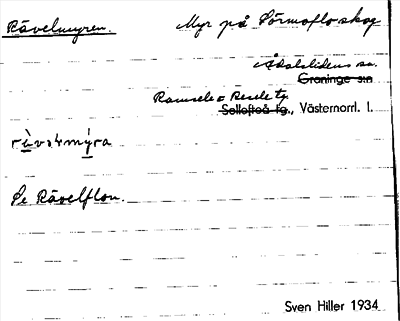 Rävelmyren. Myr på Sörmoflo skog
Ådalslidens sn.
Graninge s:n
Ramsele o Resele tg.
Sollefteå tg., Västernorrl. l.
Se Rävelflon.
Sven Hiller 1934